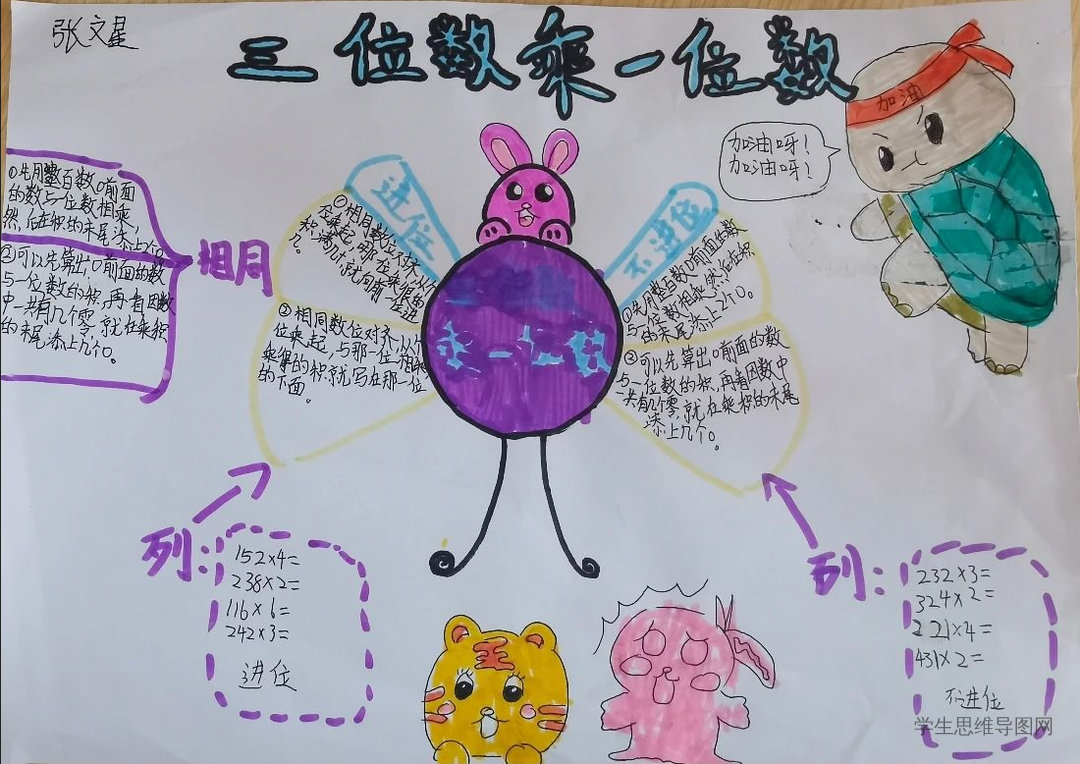 张文星
三位数乘一位数
加油
加油呀!
加油呀!
①先用整百数0前面
的数与一位数相乘,
然后在积的末尾添上2个0
②可以先算出0前面的数
与一位数的积,再看因数
中一共有几个零,就在乘积
的末尾添上几个0。
相同
进位
①相同数位对齐,从个
位乘起,哪一位乘得的
积满几十,就向前一位进
几。
②相同数位对齐,从个
位乘起,与那一位相乘
乘得的积,就写在那一位
的下面。
不进位
①先用整百数0前面的数
与一位数相乘,然后在积
的末尾添上2个0。
②可以先算出0前面的数
与一位数的积,再看因数中
一共有几个零,就在乘积的末尾
添上几个0。
列:
152×4=
238×2=
116×6=
242×3=
进位
列:
232×3=
324×2=
221×4=
431×2=
不进位
学生思维导图网